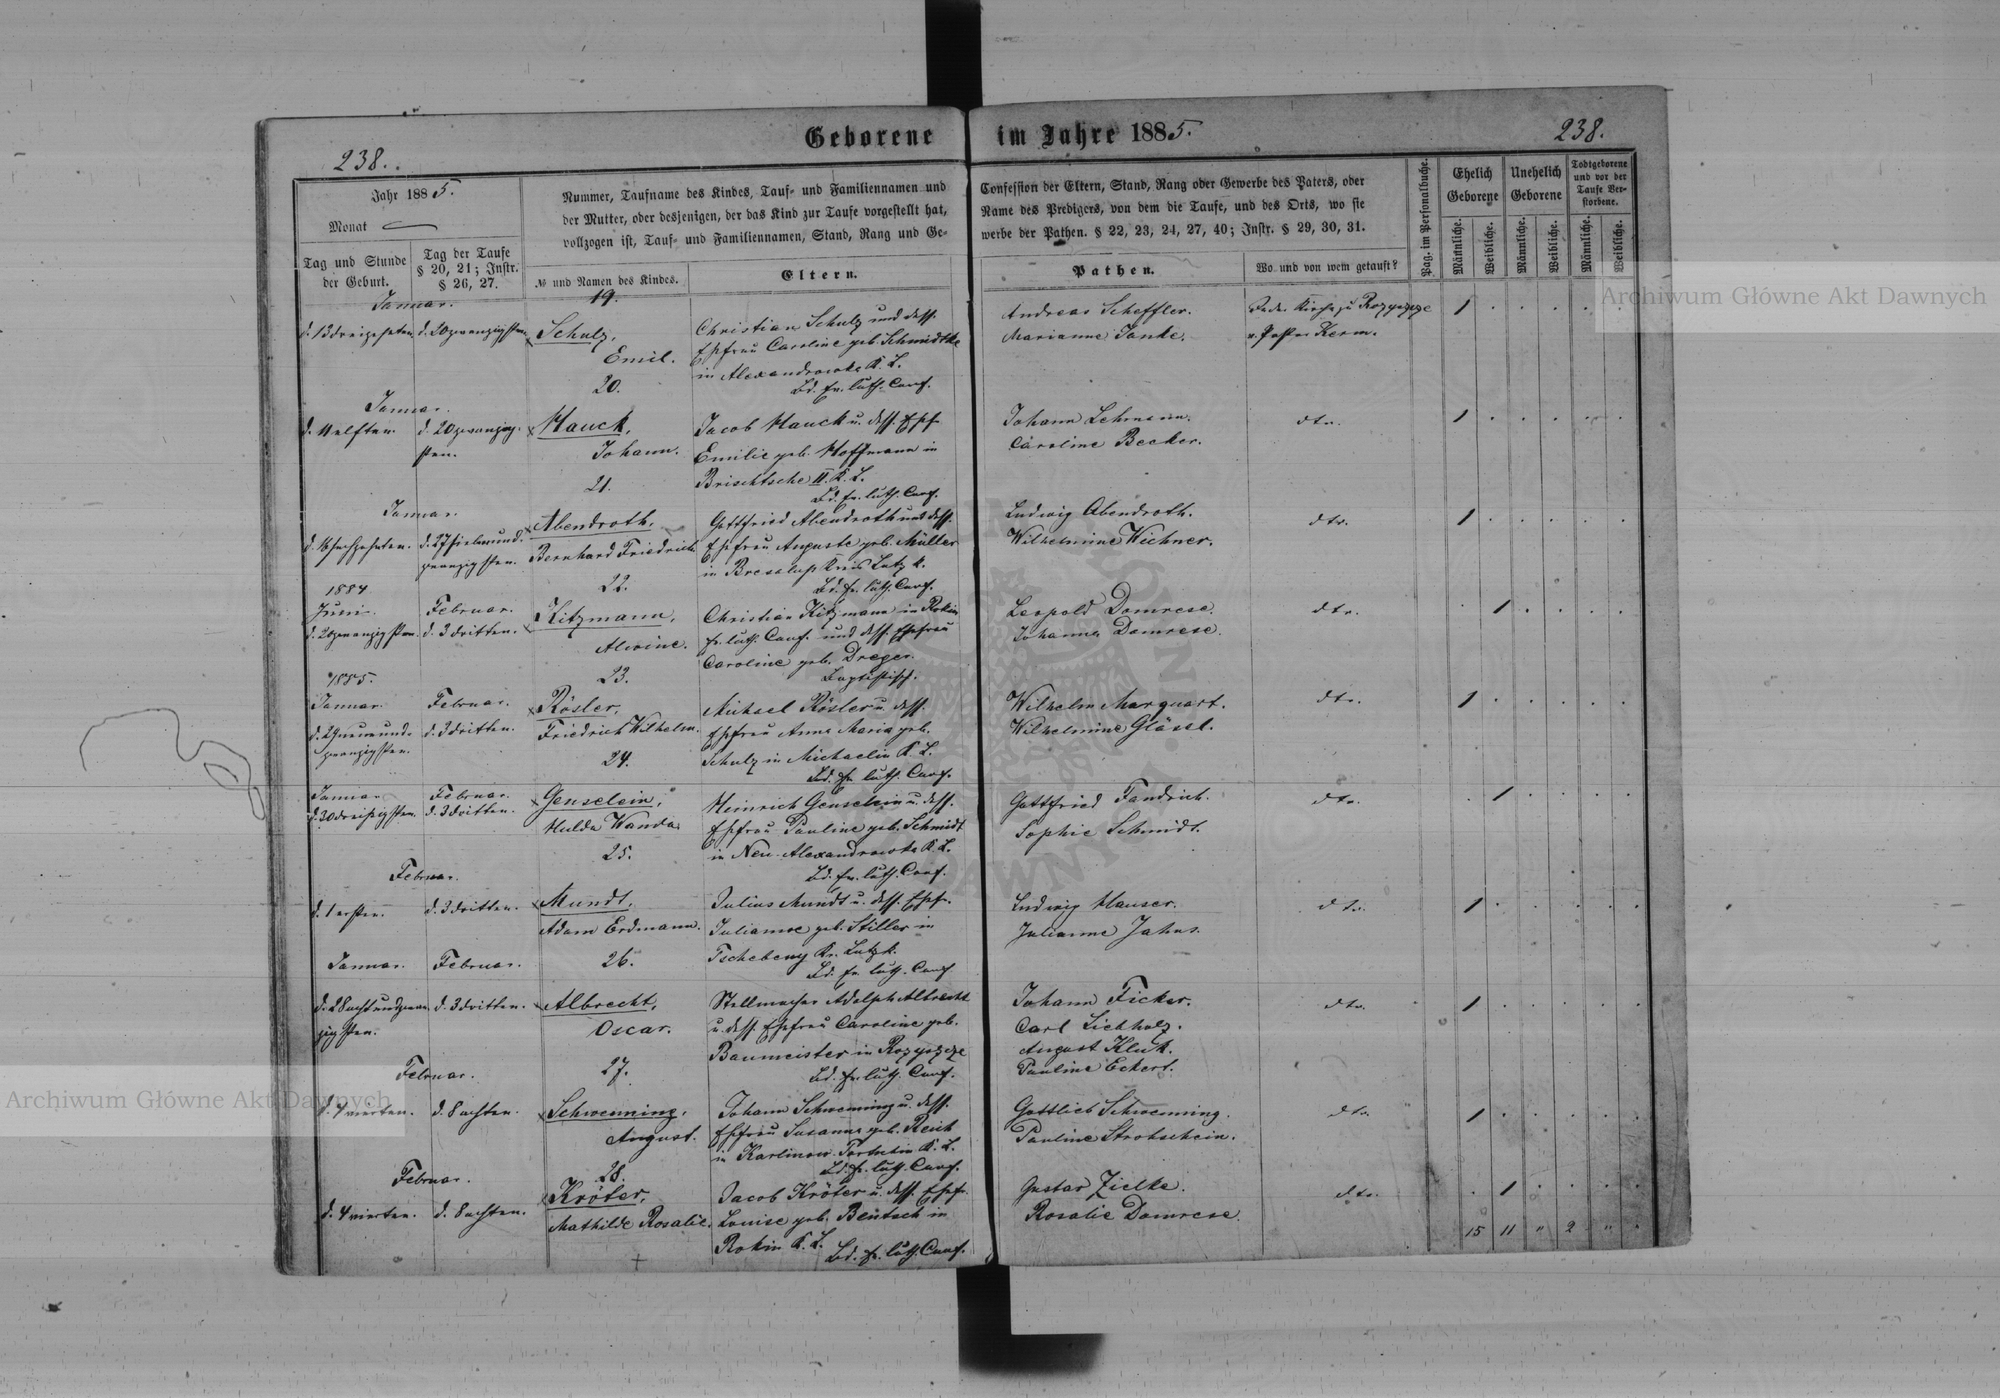 Geborene im Jahre 1885.
238.
238.
Jahr 1885.
Monat
Tag und Stunde der Geburt.
Tag der Taufe § 20, 21; Instr. § 26, 27.
Nummer, Taufname des Kindes, Tauf- und Familiennamen und
der Mutter, oder desjenigen, der das Kind zur Taufe vorgestellt hat,
vollzogen ist, Tauf- und Familiennamen, Stand, Rang und Ge-
№ und Namen des Kindes.
Eltern.
Confession der Eltern, Stand, Rang oder Gewerbe des Vaters, oder
Name des Predigers, von dem die Taufe, und des Orts, wo sie
werbe der Pathen. § 22, 23, 24, 27, 40; Instr. § 29, 30, 31.
Pathen.
Wo und von wem getauft?
Pag. im Personalbuche.
Ehelich Geborene
Unehelich Geborene
Todtgeborene und vor der Taufe Verstorbene.
Männliche.
Weibliche.
Männliche.
Weibliche.
Männliche.
Weibliche.
Januar.
d. 13 dreizehnten
d. 20 zwanzigsten
19.
Schulz,
Emil.
Christian Schulz und dess.
Ehefrau Caroline geb. Schmidtke
in Alexandrowka K. L.
Bd. ev. luth. Conf.
Andreas Scheffler.
Marianne Janke.
In der Kirche zu Rozyszcze
v. Pastor Kerm.
Januar.
d. 11 elften
d. 20 zwanzigsten.
20.
Hauck,
Johann.
Jacob Hauck u. dess. Ehefr.
Emilie geb. Hoffmann in
Brischtsche II. K. L.
Bd. ev. luth. Conf.
Johann Lehmann.
Caroline Becker.
dto.
Januar.
d. 16 sechzehnten.
d. 27 siebenund-
zwanzigsten.
21.
Abendroth,
Bernhard Friedrich
Gottfried Abendroth und dess.
Ehefrau Auguste geb. Müller
Bd. ev. luth. Conf.
Ludwig Abendroth.
Wilhelmine Wichner.
dto.
1884
Juni.
d. 20 zwanzigsten.
Februar.
d. 3 dritten.
22.
Kitzmann,
Alwine.
Christian Kitzmann in Rokin
ev. luth. Conf. und dess. Ehefrau
Caroline geb. Dreger.
Baptistisch.
Leopold Domrese.
Johanna Domrese.
dto.
1885.
Januar.
d. 29 neunund-
zwanzigsten.
Februar.
d. 3 dritten.
23.
Rösler,
Friedrich Wilhelm.
Michael Rösler u. dess.
Ehefrau Anna Maria geb.
Schulz in Michaelin K. L.
Bd. ev. luth. Conf.
Wilhelm Marquart.
Wilhelmine Glässl.
dto.
Januar
d. 30 dreißigsten.
Februar.
d. 3 dritten.
24.
Genselein,
Hulda Wanda.
Heinrich Genselein u. dess.
Ehefrau Pauline geb. Schmidt
in Neu-Alexandrowka K. L.
Bd. ev. luth. Conf.
Gottfried Fandrich.
Sophie Schmidt.
dto.
Februar.
d. 1 ersten.
d. 3 dritten.
25.
Mundt,
Adam Erdmann.
Julius Mundt u. dess. Ehefr.
Julianne geb. Stiller in
Tscheheny Kr. Lutzk.
Bd. ev. luth. Conf
Ludwig Hauser.
Julianne Jahns.
dto.
Januar.
d. 28 achtundzwan-
zigsten.
Februar.
d. 3 dritten.
26.
Albrecht,
Oscar.
Stellmacher Adolph Albrecht
u. dess. Ehefrau Caroline geb.
Baumeister in Rozyszcze
Bd. ev. luth. Conf.
Johann Ficker.
Carl Lichholz.
August Kluk.
Pauline Eckert.
dto.
Februar.
d. 4 vierten.
d. 8 achten.
27.
Schwenning,
August.
Johann Schwenning u. dess.
Ehefrau Susanna geb. Reich
Bd. ev. luth. Conf.
Gottlieb Schwenning.
Pauline Strohschein.
dto.
Februar.
d. 4 vierten.
d. 8 achten.
28.
Kröter,
Mathilde Rosalie.
Jacob Kröter u. dess. Ehefr.
Louise geb. Bentsch in
Rokin K. L.
Bd. ev. luth. Conf.
Gustav Zielke.
Rosalie Domrese.
dto.
15 11 " 2 "
Archiwum Główne Akt Dawnych
Archiwum Główne Akt Dawnych